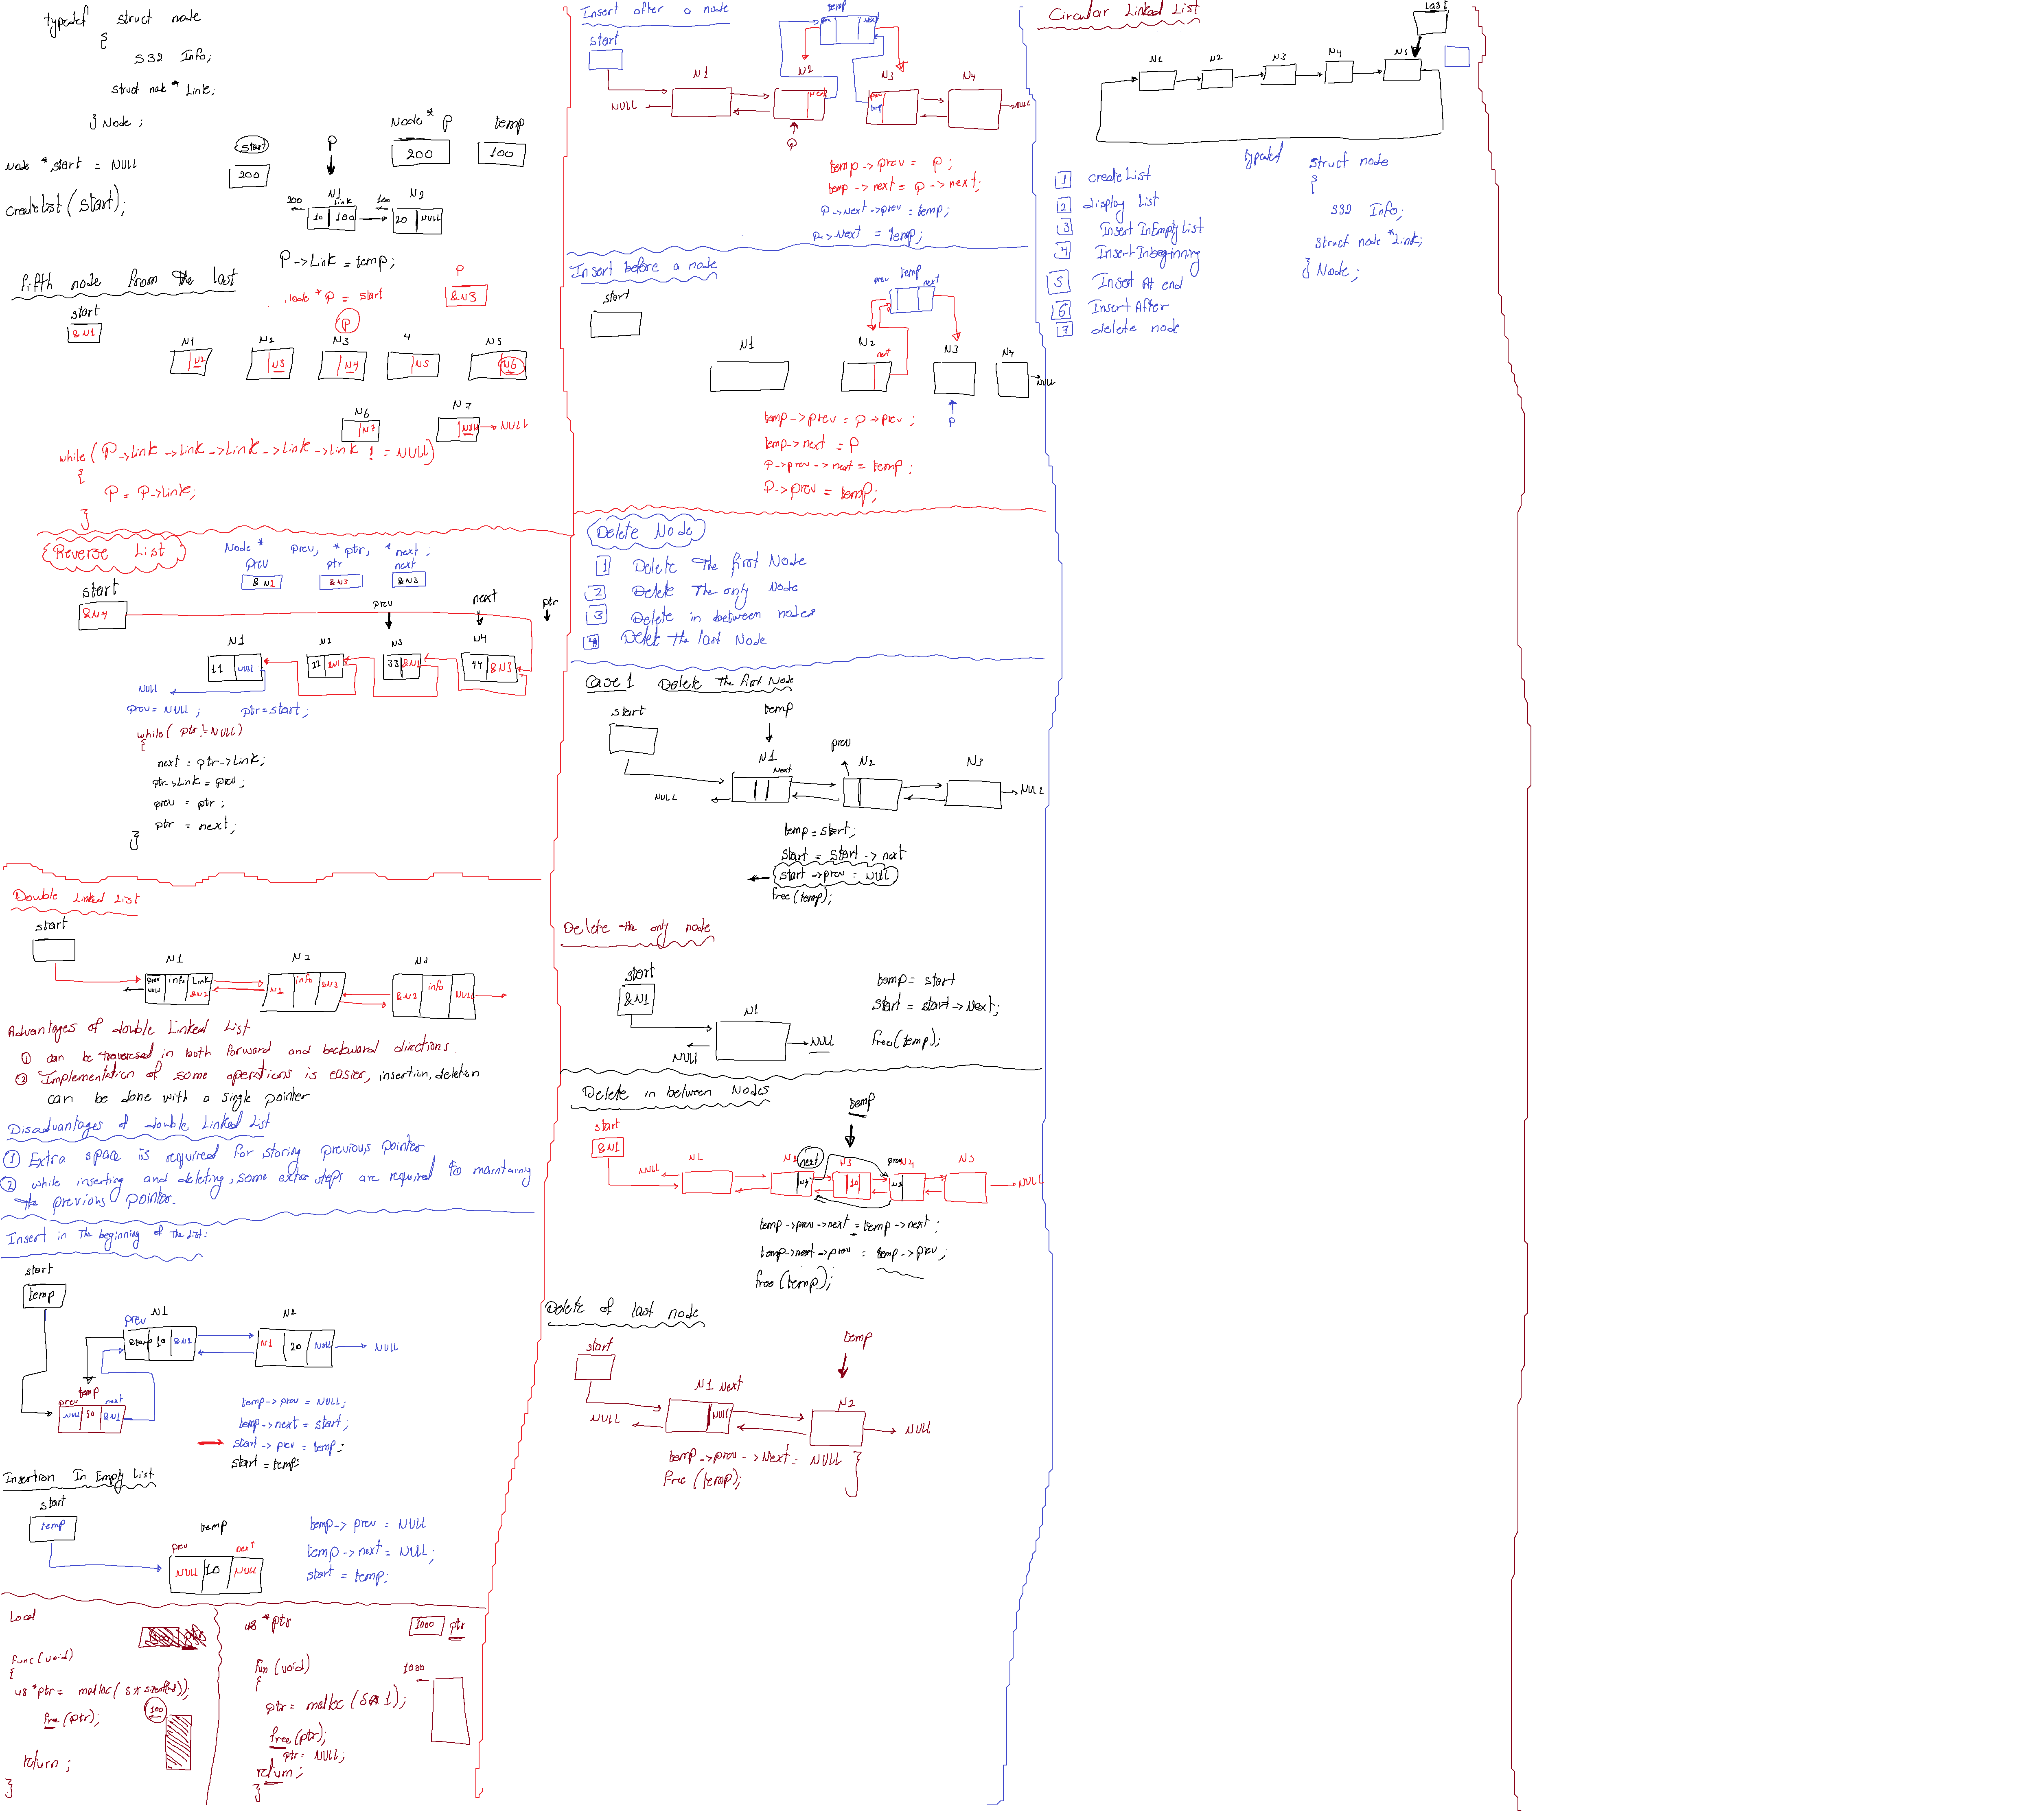 typedef struct node
{
S32 Info;
struct node * Link;
} Node ;
Node *start = NULL
createlist ( start );
start
200
P
Node * P
200
temp
100
200
N1
Link
100
N2
10 100
20 NULL
P->Link = temp;
Fifth node from the last
Node * P = start
P
&N3
start
&N1
P
N1 N2 N3 4 N5
N2 N3 N4 N5 N6
N6 N7
N7 NULL NULL
while ( P->Link ->Link ->Link ->Link ->Link ! = NULL)
{
P = P->Link;
}
Reverse List
Node * prev, * ptr, * next ;
prev ptr next
& N2 & N3 & N3
start
&N4
prev next ptr
N1 N2 N3 N4
11 NULL 22 &N1 33 &N2 44 &N3
NULL
prev = NULL ; ptr=start;
while( ptr!=NULL)
{
next = ptr->Link;
ptr->Link = prev;
prev = ptr ;
ptr = next;
}
Double Linked List
start
N1 N2 N3
prev info Link info info
NULL &N2 N1 &N3 &N2 NULL
Advantages of double Linked List
① can be traversed in both forward and backward directions.
② Implementation of some operations is easier, insertion, deletion
can be done with a single pointer
Disadvantages of double Linked List
① Extra space is required for storing previous pointer
② while inserting and deleting, some extra steps are required to maintaing
the previous pointer.
Insert in The beginning of The List:
start
temp
prev N1 N2
&temp 10 &N2 N1 20 NULL NULL
temp
prev next
NULL 50 &N1
temp->prev = NULL;
temp->next = start;
start->prev = temp;
start = temp;
Insertion In Empty List
start
temp
temp
prev next
NULL 10 NULL
temp-> prev = NULL
temp->next = NULL;
start = temp;
Local
func(void)
{
u8 *ptr = malloc( 5 * sizeof(u8));
100
free (ptr);
return ;
}
u8 *ptr
1000 ptr
fun (void)
{
1000
ptr = malloc (5 * 1);
free(ptr);
ptr = NULL;
return ;
}
Insert after a node
start
temp
prev next
N1 N2 N3 N4
NULL next prev NULL
temp
P
temp->prev = P ;
temp->next = P->next;
P->Next->prev = temp;
P->Next = temp;
Insert before a node
start
prev temp next
N1 N2 N3 N4
next
NULL
P
temp->prev = P->prev;
temp->next = P
P->prev->next = temp;
P->prev = temp;
Delete Node
1 Delete The first Node
2 Delete The only Node
3 Delete in between nodes
4 Delete the last Node
Case 1 Delete The first Node
start
temp
prev
N1 N2 N3
Next
NULL NULL
temp = start;
start = start->next
start->prev = NULL
free(temp);
Delete the only node
start
&N1
N1
NULL NULL
temp = start
start = start->Next;
free(temp);
Delete in between Nodes
temp
start
&N1
NULL N1 N2 next N3 prev N4 N5
10
NULL
temp->prev->next = temp->next ;
temp->next->prev = temp->prev;
free (temp);
Delete of last node
start
temp
N1 Next
N2
NULL NULL NULL
temp->prev->Next = NULL
free (temp);
}
Circular Linked List
Last
N1 N2 N3 N4 N5
1 createList
2 display List
3 Insert InEmptyList
4 Insert Inbeginning
5 Insert At end
6 Insert After
7 delete node
typedef struct node
{
S32 Info;
struct node *Link;
} Node ;